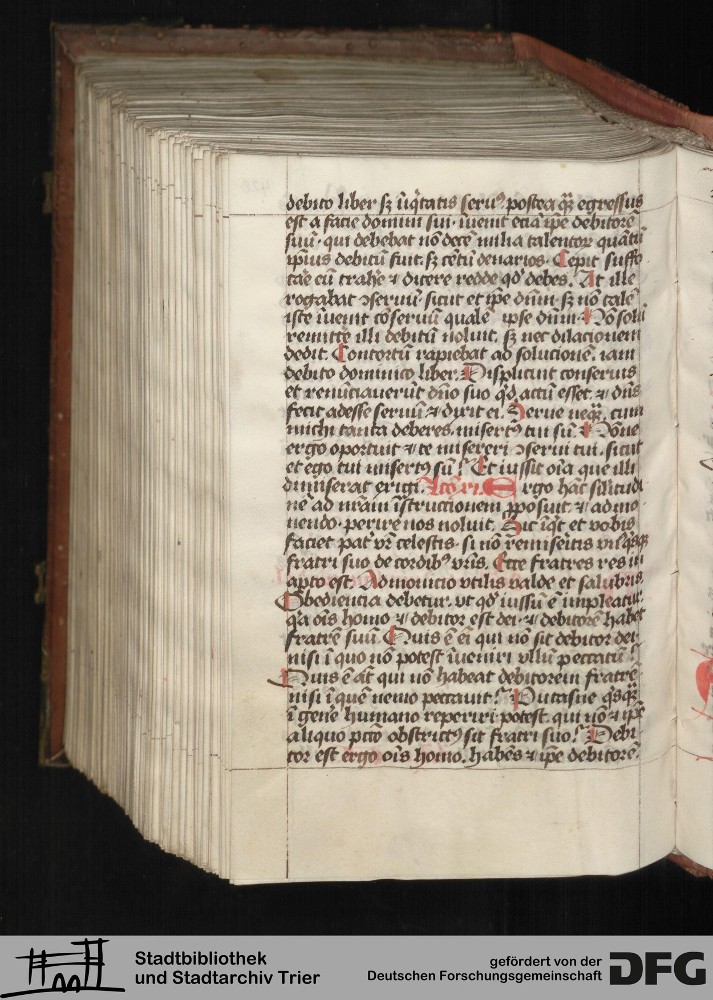 debito liber sꝫ iīq̇tatis seruꝰ. postea qꝫ egressus
est a facie domini sui. īuenit eciā ip̄e debitorē
suū. qui debebat nō decē milia talentoꝝ quātū
ip̄ius debitū fuit. sꝫ cētū denarios. Cepit suffo
care eū trahe᷑ ⁊ dicere redde qd̓ debes. At ille
rogabat ↄseruū sicut et ip̄e dn̄m. sꝫ nō talē
iste īuenit cōseruū qualē ipse dn̄m. Nō solū
remitte᷑ illi debitū noluit. sꝫ nec dilacionem
dedit. Contortū rapiebat ad solucionē. iam
debito dominico liber. Displicuit conseruis
et renūciauerūt dn̄o suo qd̓ actū esset. ⁊ dn̄s
fecit adesse seruū ⁊ dixit ei. Serue neqꝫ. cum
michi tanta deberes. misertꝰ tui sū. Nōne
ergo oportuit ⁊ te misereri ↄserui tui. sicut
et ego tui misertꝰ sū? Et iussit oīa que illi
dimiserat erigi. Ergo hāc silitudi
nē ad nr̄am īstructionem ꝓposuit. ⁊ admo
nendo. perire nos noluit. Sic īqt et vobis
faciet pat᷑ vr̄ celestis. si nō remiseritis vnꝰqsqꝫ
fratri suo de cordibꝰ vr̄is. Ecce fratres res in
apto est. Admonicio vtilis valde et salubris.
Obediencia debetur. vt qd̓ iussū ē impleatur.
qꝛ oīs homo ⁊ debitor est dei. ⁊ debitorē habet
fratrē suū. Quis ē ei qui nō sit debitor dei
nisi ī quo nō potest īueniri vllū peccatū?
Quis ē āt qui nō habeat debitorem fratrē
nisi ī quē nemo peccauit? Putasne qsqꝫ
ī gene᷑ humano reperiri potest. qui nō ⁊ ip̄e
aliquo pcc̄o obstrictꝰ sit fratri suo? Debi
tor est ergo oīs homo. habēs ⁊ ip̄e debitorē.
Stadtbibliothek
und Stadtarchiv Trier
gefördert von der
Deutschen Forschungsgemeinschaft
DFG